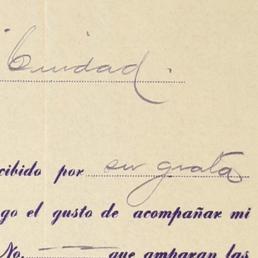 Ciudad.
cibido por su grata
go el gusto de acompañar mi
No. —— que amparan las